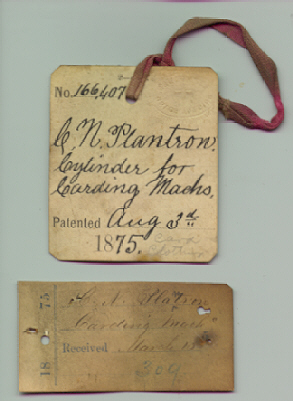 No. 166,407
C. N. Plantron.
Cylinder for
Carding Machs.
Patented Aug 3d
1875.
Card
18 75
C. N. Platron
"Carding Mach"
Received March 15
309